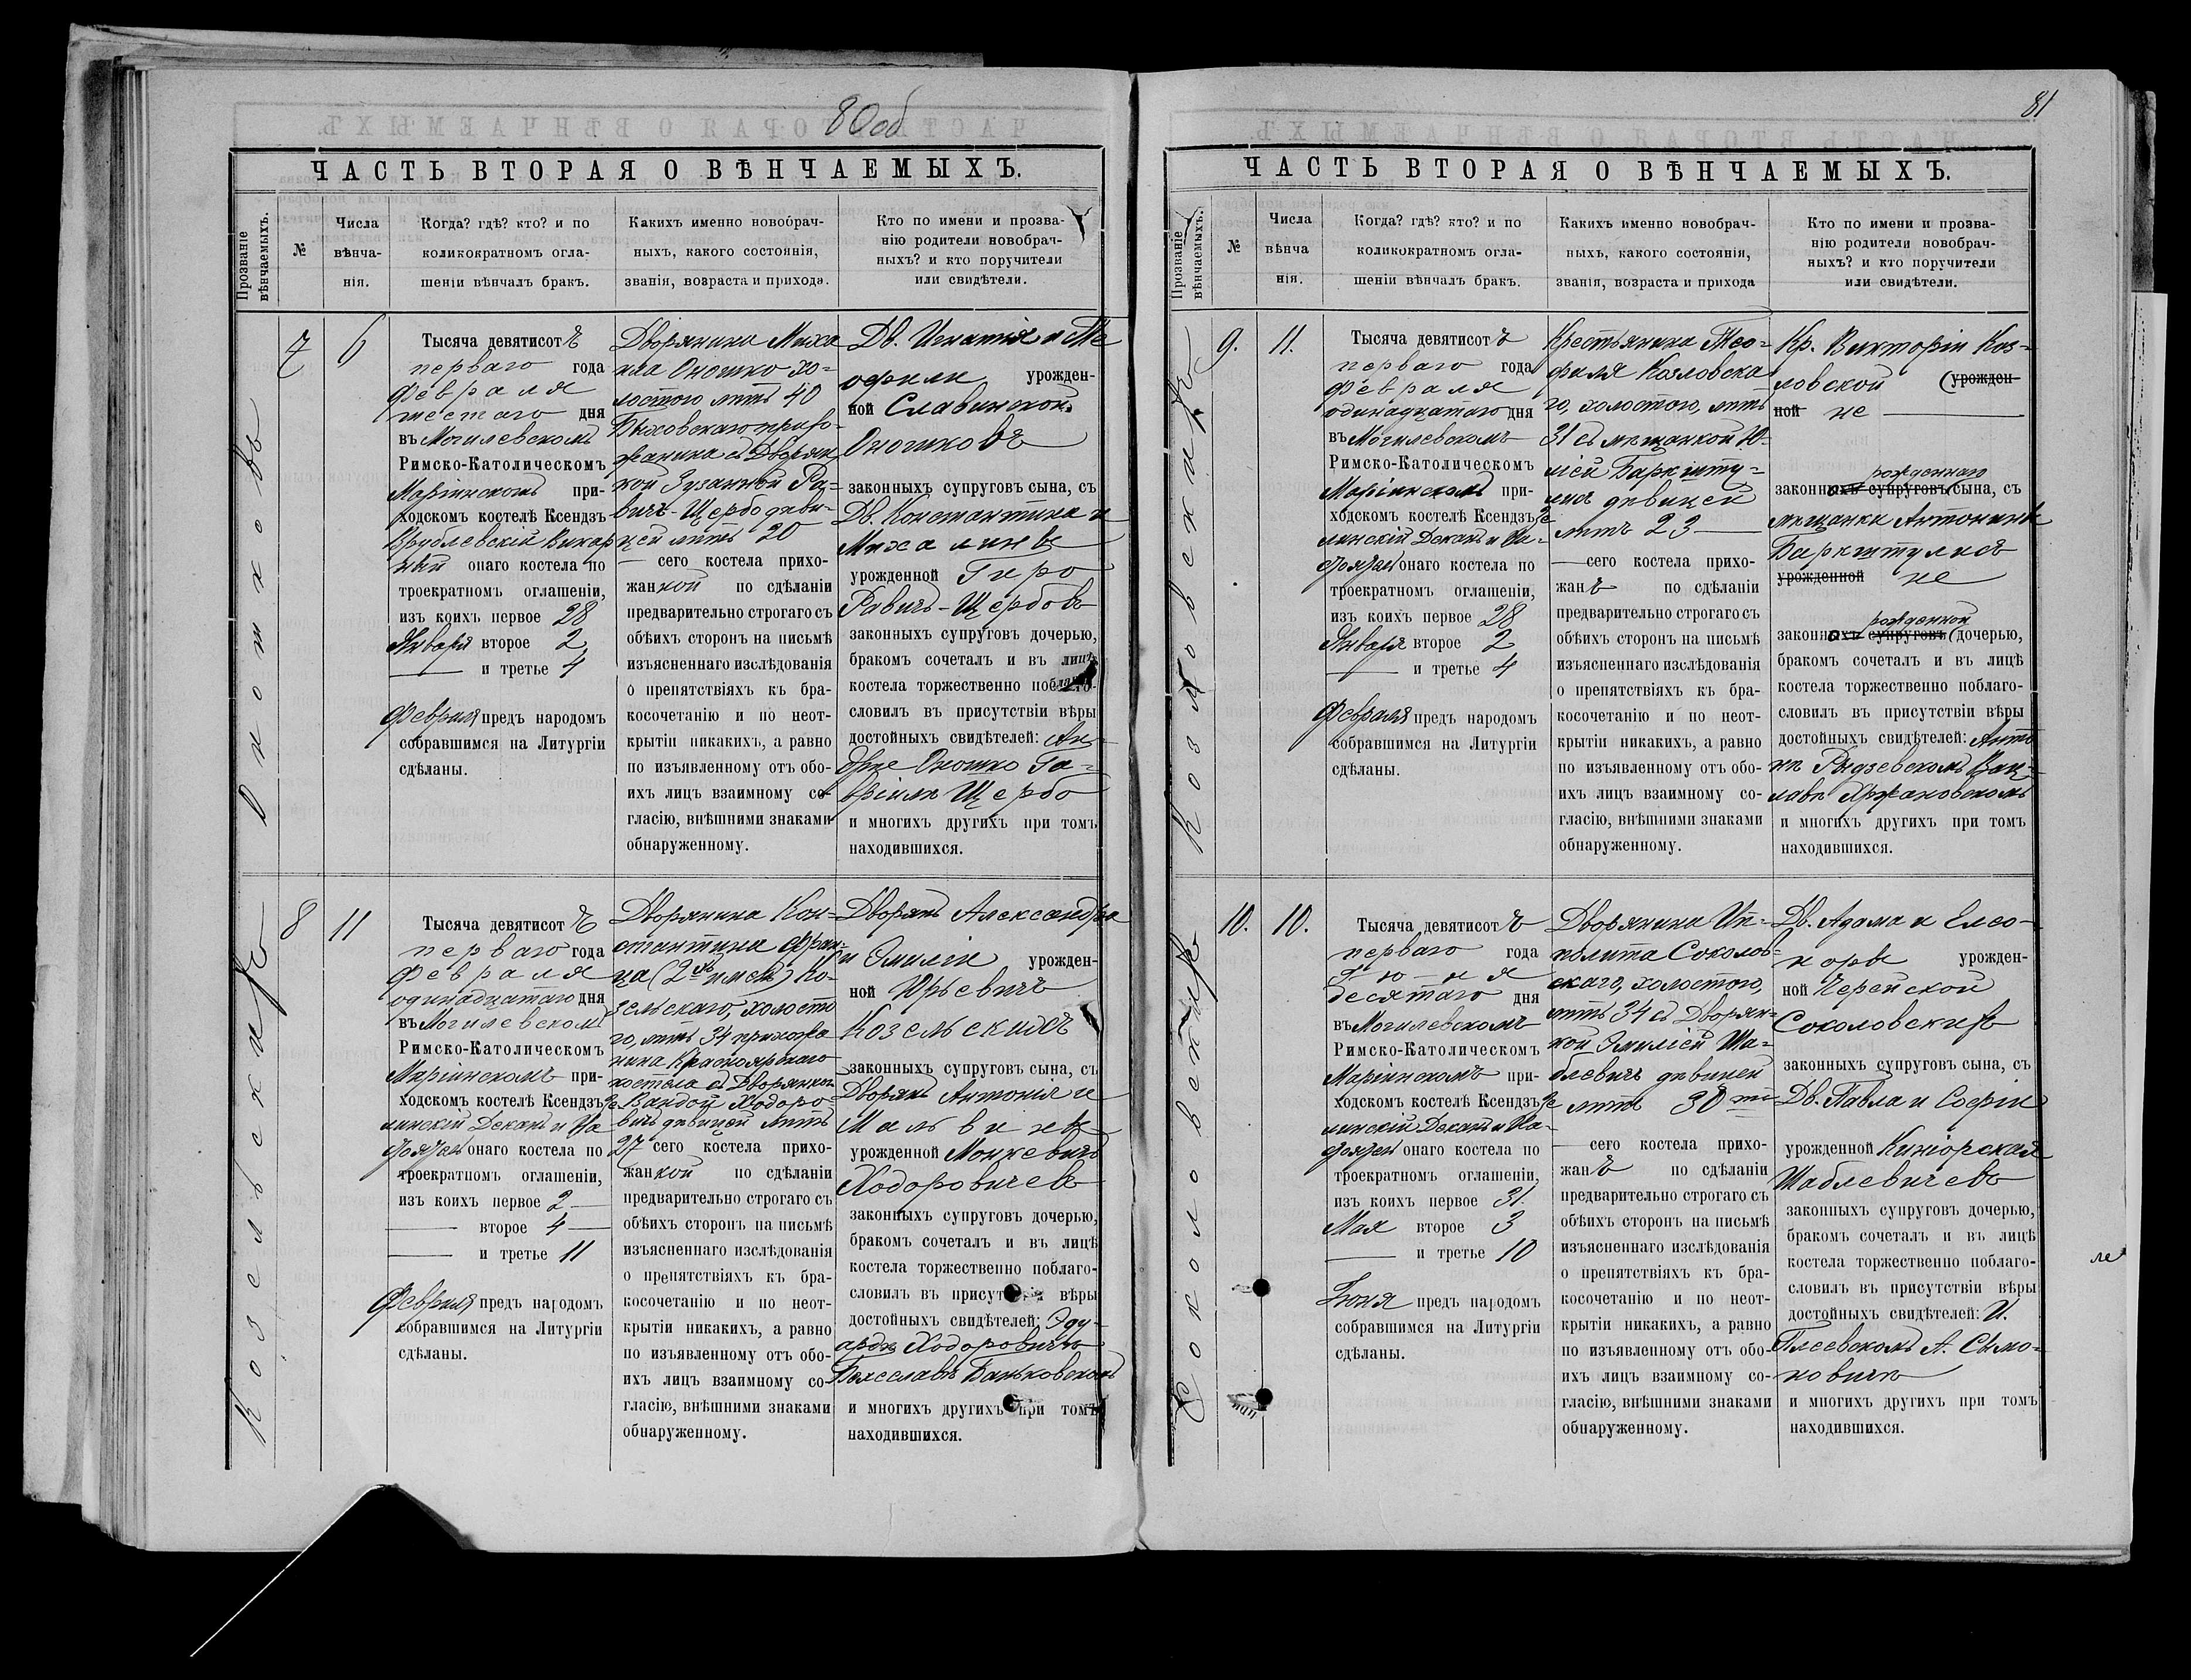 80об
ЧАСТЬ ВТОРАЯ О ВѢНЧАЕМЫХЪ.
Прозваніе вѣнчаемыхъ.
№
Числа
вѣнча-
нія.
Когда? гдѣ? кто? и по
коликократномъ огла-
шеніи вѣнчалъ бракъ.
Какихъ именно новобрач-
ныхъ, какого состоянія,
званія, возраста и прихода.
Кто по имени и прозва-
нію родители новобрач-
ныхъ? и кто поручители
или свидѣтели.
Оношковъ
7
6
Тысяча девятисотъ
перваго года
Февраля
шестаго дня
въ Могилевскомъ
Римско-Католическомъ
Маріинскомъ при-
ходскомъ костелѣ Ксендзъ
Врублевскій Викар
ный онаго костела по
троекратномъ оглашеніи,
изъ коихъ первое 28
Января второе 2
и третье 4
Февраля предъ народомъ
собравшимся на Литургіи
сдѣланы.
Дворянина Миха
ила Оношко хо-
лостого лѣтъ 40
Быховскаго прихо-
жанина съ Дворян
кой Зузанной Ра-
вичъ-Щербо дѣви-
цей лѣтъ 20
сего костела прихо-
жанкой по сдѣланіи
предварительно строгаго съ
обѣихъ сторонъ на письмѣ
изъясненнаго изслѣдованія
о препятствіяхъ къ бра-
косочетанію и по неот-
крытіи никакихъ, а равно
по изъявленному отъ обо-
ихъ лицъ взаимному со-
гласію, внѣшними знаками
обнаруженному.
Дв. Игнатія и Те
офили урожден-
ной Славинской
Оношковъ
законныхъ супруговъ сына, съ
Дв. Константина и
Михалины
урожденной Гиро
Равичъ-Щербовъ
законныхъ супруговъ дочерью,
бракомъ сочеталъ и въ лицѣ
костела торжественно поблаго-
словилъ въ присутствіи вѣры
достойныхъ свидѣтелей: Ан-
дрѣе Оношко Га-
вріилѣ Щербо
и многихъ другихъ при томъ
находившихся.
Козельскихъ
8
11
Тысяча девятисотъ
перваго года
Февраля
одинадцатаго дня
въ Могилевскомъ
Римско-Католическомъ
Маріинскомъ при-
ходскомъ костелѣ Ксендзъ Зе
линскій Деканъ и На
онаго костела по
троекратномъ оглашеніи,
изъ коихъ первое 2
второе 4
и третье 11
Февраля предъ народомъ
собравшимся на Литургіи
сдѣланы.
Дворянина Кон-
стантина Фран-
ца (2хъ именъ) Ко-
зельскаго, холосто
го, лѣтъ 34 прихожа
нина Красноярскаго
костела съ Дворянкой
Вандой Ходоро
вичъ дѣвицей лѣтъ
27 сего костела прихо-
жанкой по сдѣланіи
предварительно строгаго съ
обѣихъ сторонъ на письмѣ
изъясненнаго изслѣдованія
о препятствіяхъ къ бра-
косочетанію и по неот-
крытіи никакихъ, а равно
по изъявленному отъ обо-
ихъ лицъ взаимному со-
гласію, внѣшними знаками
обнаруженному.
Дворянъ Александра
и Эмиліи урожден-
ной Юрьевичъ
Козельскихъ
законныхъ супруговъ сына, съ
Дворянъ Антонія и
Мальвины
урожденной Монкевичъ
Ходоровичевъ
законныхъ супруговъ дочерью,
бракомъ сочеталъ и въ лицѣ
костела торжественно поблаго-
словилъ въ присутствіи вѣры
достойныхъ свидѣтелей: Эду-
ардѣ Ходоровичъ
Болеславѣ Баньковскомъ
и многихъ другихъ при томъ
находившихся.
81
ЧАСТЬ ВТОРАЯ О ВѢНЧАЕМЫХЪ.
Прозваніе вѣнчаемыхъ.
№
Числа
вѣнча
нія.
Когда? гдѣ? кто? и по
коликократномъ огла-
шеніи вѣнчалъ бракъ.
Какихъ именно новобрач-
ныхъ, какого состоянія,
званія, возраста и прихода
Кто по имени и прозва-
нію родители новобрач-
ныхъ? и кто поручители
или свидѣтели.
Козловскихъ
9.
11.
Тысяча девятисотъ
перваго года
Февраля
одинадцатаго дня
въ Могилевскомъ
Римско-Католическомъ
Маріинскомъ при-
ходскомъ костелѣ Ксендзъ Зе
линскій Деканъ и На-
онаго костела по
троекратномъ оглашеніи,
изъ коихъ первое 28
Января второе 2
и третье 4
Февраля предъ народомъ
собравшимся на Литургіи
сдѣланы.
Крестьянина Тео-
филя Козловска
го, холостого, лѣтъ
31 съ мѣщанкой Ю-
ліей Баркшту-
лисъ дѣвицей
лѣтъ 23
сего костела прихо-
жанъ по сдѣланіи
предварительно строгаго съ
обѣихъ сторонъ на письмѣ
изъясненнаго изслѣдованія
о препятствіяхъ къ бра-
косочетанію и по неот-
крытіи никакихъ, а равно
по изъявленному отъ обо-
ихъ лицъ взаимному со-
гласію, внѣшними знаками
обнаруженному.
Кр. Викторіи Коз-
ловской (урожден-
ной не
рожденнаго
законныхъ супруговъ (сына, съ
мѣщанки Антонины
Баркштулисъ
урожденной не
рожденной
законныхъ супруговъ (дочерью,
бракомъ сочеталъ и въ лицѣ
костела торжественно поблаго-
словилъ въ присутствіи вѣры
достойныхъ свидѣтелей: Анто
нѣ Рындзевскомъ Вац-
лавѣ Хржановскомъ
и многихъ другихъ при томъ
находившихся.
Соколовскихъ
10.
10.
Тысяча девятисотъ
перваго года
Іюня
десятаго дня
въ Могилевскомъ
Римско-Католическомъ
Маріинскомъ при-
ходскомъ костелѣ Ксендзъ Зе
линскій Деканъ и На-
онаго костела по
троекратномъ оглашеніи,
изъ коихъ первое 31.
Мая второе 3
и третье 10
Іюня предъ народомъ
собравшимся на Литургіи
сдѣланы.
Дворянина Ип-
полита Соколов-
скаго, холостого,
лѣтъ 34 съ Дворян-
кой Эмиліей Ша-
блевичъ дѣвицей
лѣтъ 30ти
сего костела прихо-
жанъ по сдѣланіи
предварительно строгаго съ
обѣихъ сторонъ на письмѣ
изъясненнаго изслѣдованія
о препятствіяхъ къ бра-
косочетанію и по неот-
крытіи никакихъ, а равно
по изъявленному отъ обо-
ихъ лицъ взаимному со-
гласію, внѣшними знаками
обнаруженному.
Дв. Адама и Елео-
норы урожден-
ной Черейской
Соколовскихъ
законныхъ супруговъ сына, съ
Дв. Павла и Софіи
урожденной
Шаблевичевъ
законныхъ супруговъ дочерью,
бракомъ сочеталъ и въ лицѣ
костела торжественно поблаго-
словилъ въ присутствіи вѣры
достойныхъ свидѣтелей: И.
А. Сымо-
новичъ
и многихъ другихъ при томъ
находившихся.